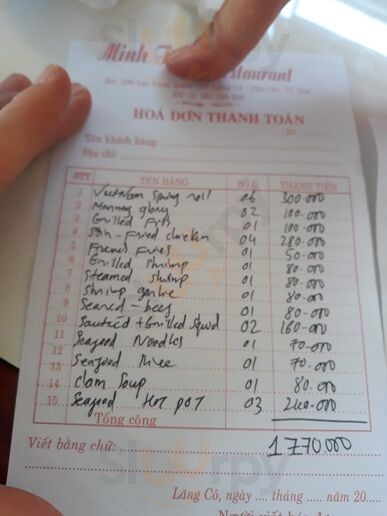 Minh Restaurant
HOÁ ĐƠN THANH TOÁN
Số
Tên khách hàng
Địa chỉ:
STT TÊN HÀNG SỐ L THÀNH TIỀN
1 Vietnam Spring roll 06 300.000
2 Morning glory 02 100.000
3 Grilled Fish 01 100.000
4 Stir-Fried chicken 04 280.000
5 French Fries 01 50.000
6 Grilled shrimp 01 80.000
7 Steamed shrimp 01 80.000
8 Shrimp garlic 01 80.000
9 Seared-beef 01 80.000
10 Sauteed + Grilled Squid 02 160.000
11 Seafood Noodles 01 70.000
12
13 Seafood 01 70.000
14 Clam Soup 01 80.000
15 Seafood Hot pot 03 240.000
Tổng cộng
Viết bằng chữ: 1770000
Lăng Cô, ngày .... tháng ..... năm 20.....
Người viết hóa đơn